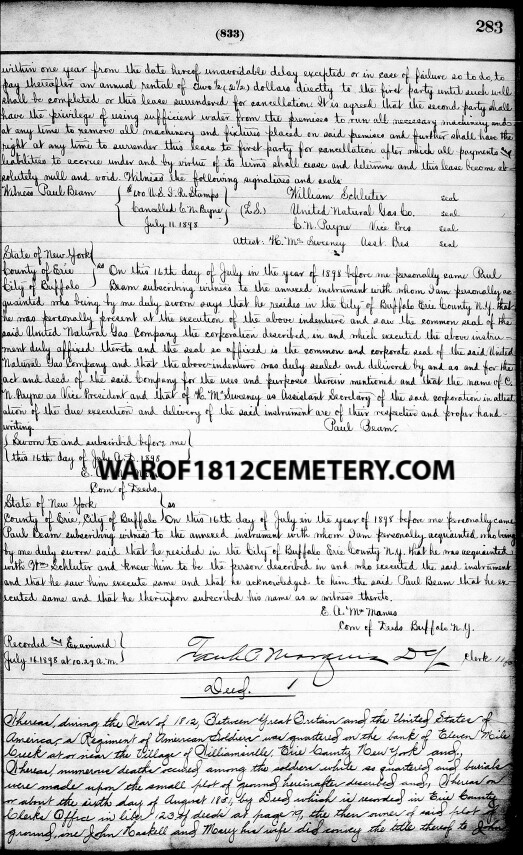 (833)
283
within one year from the date hereof unavoidable delay excepted or in case of failure so to do, to
pay thereafter an annual rental of Two ½ (2½) dollars directly to the first party until such well
shall be completed or this lease surrendered for cancellation. It is agreed that the second party shall
have the privilege of using sufficient water from the premises to run all necessary machinery and
at any time to remove all machinery and fixtures placed on said premises and further shall have the
right at any time to surrender this lease to first party for cancellation after which all payments &
liabilities to accrue under and by virtue of its terms shall cease and determine and this lease become ab-
solutely null and void. Witness the following signatures and seals
Witness Paul Beam
U.S.I.R. Stamps
Cancelled C. N. Payne
July 11. 1898
(L.S.)
William Schluter seal
United Natural Gas Co. seal
C. N. Payne Vice Pres seal
Attest: H. McSweney Asst. Pres seal
State of New York
County of Erie
City of Buffalo
ss On this 16th day of July in the year of 1898 before me personally came Paul
Beam subscribing witness to the annexed instrument with whom I am personally ac-
quainted who being by me duly sworn says that he resides in the City of Buffalo Erie County N.Y. that
he was personally present at the execution of the above indenture and saw the common seal of the
said United Natural Gas Company the corporation described in and which executed the above instru-
ment duly affixed thereto and the seal so affixed is the common and corporate seal of the said United
Natural Gas Company and that the above indenture was duly sealed and delivered by and as and for the
act and deed of the said Company for the uses and purposes therein mentioned and that the name of C.
N. Payne as Vice President and that of H. McSweney as Assistant Secretary of the said corporation in attest
ation of the due execution and delivery of the said instrument are of their respective and proper hand-
writing. Paul Beam.
Sworn to and subscribed before me
this 16th day of July A.D. 1898
Com of Deeds
WAROF1812CEMETERY.COM
State of New York
ss
County of Erie, City of Buffalo On this 16th day of July in the year of 1898 before me personally came
Paul Beam subscribing witness to the annexed instrument with whom I am personally acquainted who being
by me duly sworn said that he resided in the City of Buffalo Erie County N.Y. that he was acquainted
with Wm Schluter and knew him to be the person described in and who executed the said instrument
and that he saw him execute same and that he acknowledged to him the said Paul Beam that he ex-
ecuted same and that he thereupon subscribed his name as a witness thereto.
E. A. McManus
Com of Deeds Buffalo N.Y.
Recorded & Examined
July 16. 1898 at 10.29 A.M.
Clerk
Deed.
Whereas, during the War of 1812, Between Great Britain and the United States of
America, a Regiment of American Soldiers was quartered on the bank of Eleven Mile
Creek at or near the Village of Williamsville, Erie County New York and,
Whereas, numerous deaths occured among the soldiers while so quartered and burials
were made upon the small plot of ground hereinafter described and, Whereas on
or about the sixth day of August by Deed which is recorded in Erie County
Clerks Office in liber 123 of deeds at page 79, the then owner of said plot of
ground, one John Haskell and Mary his wife did convey the title thereof to John